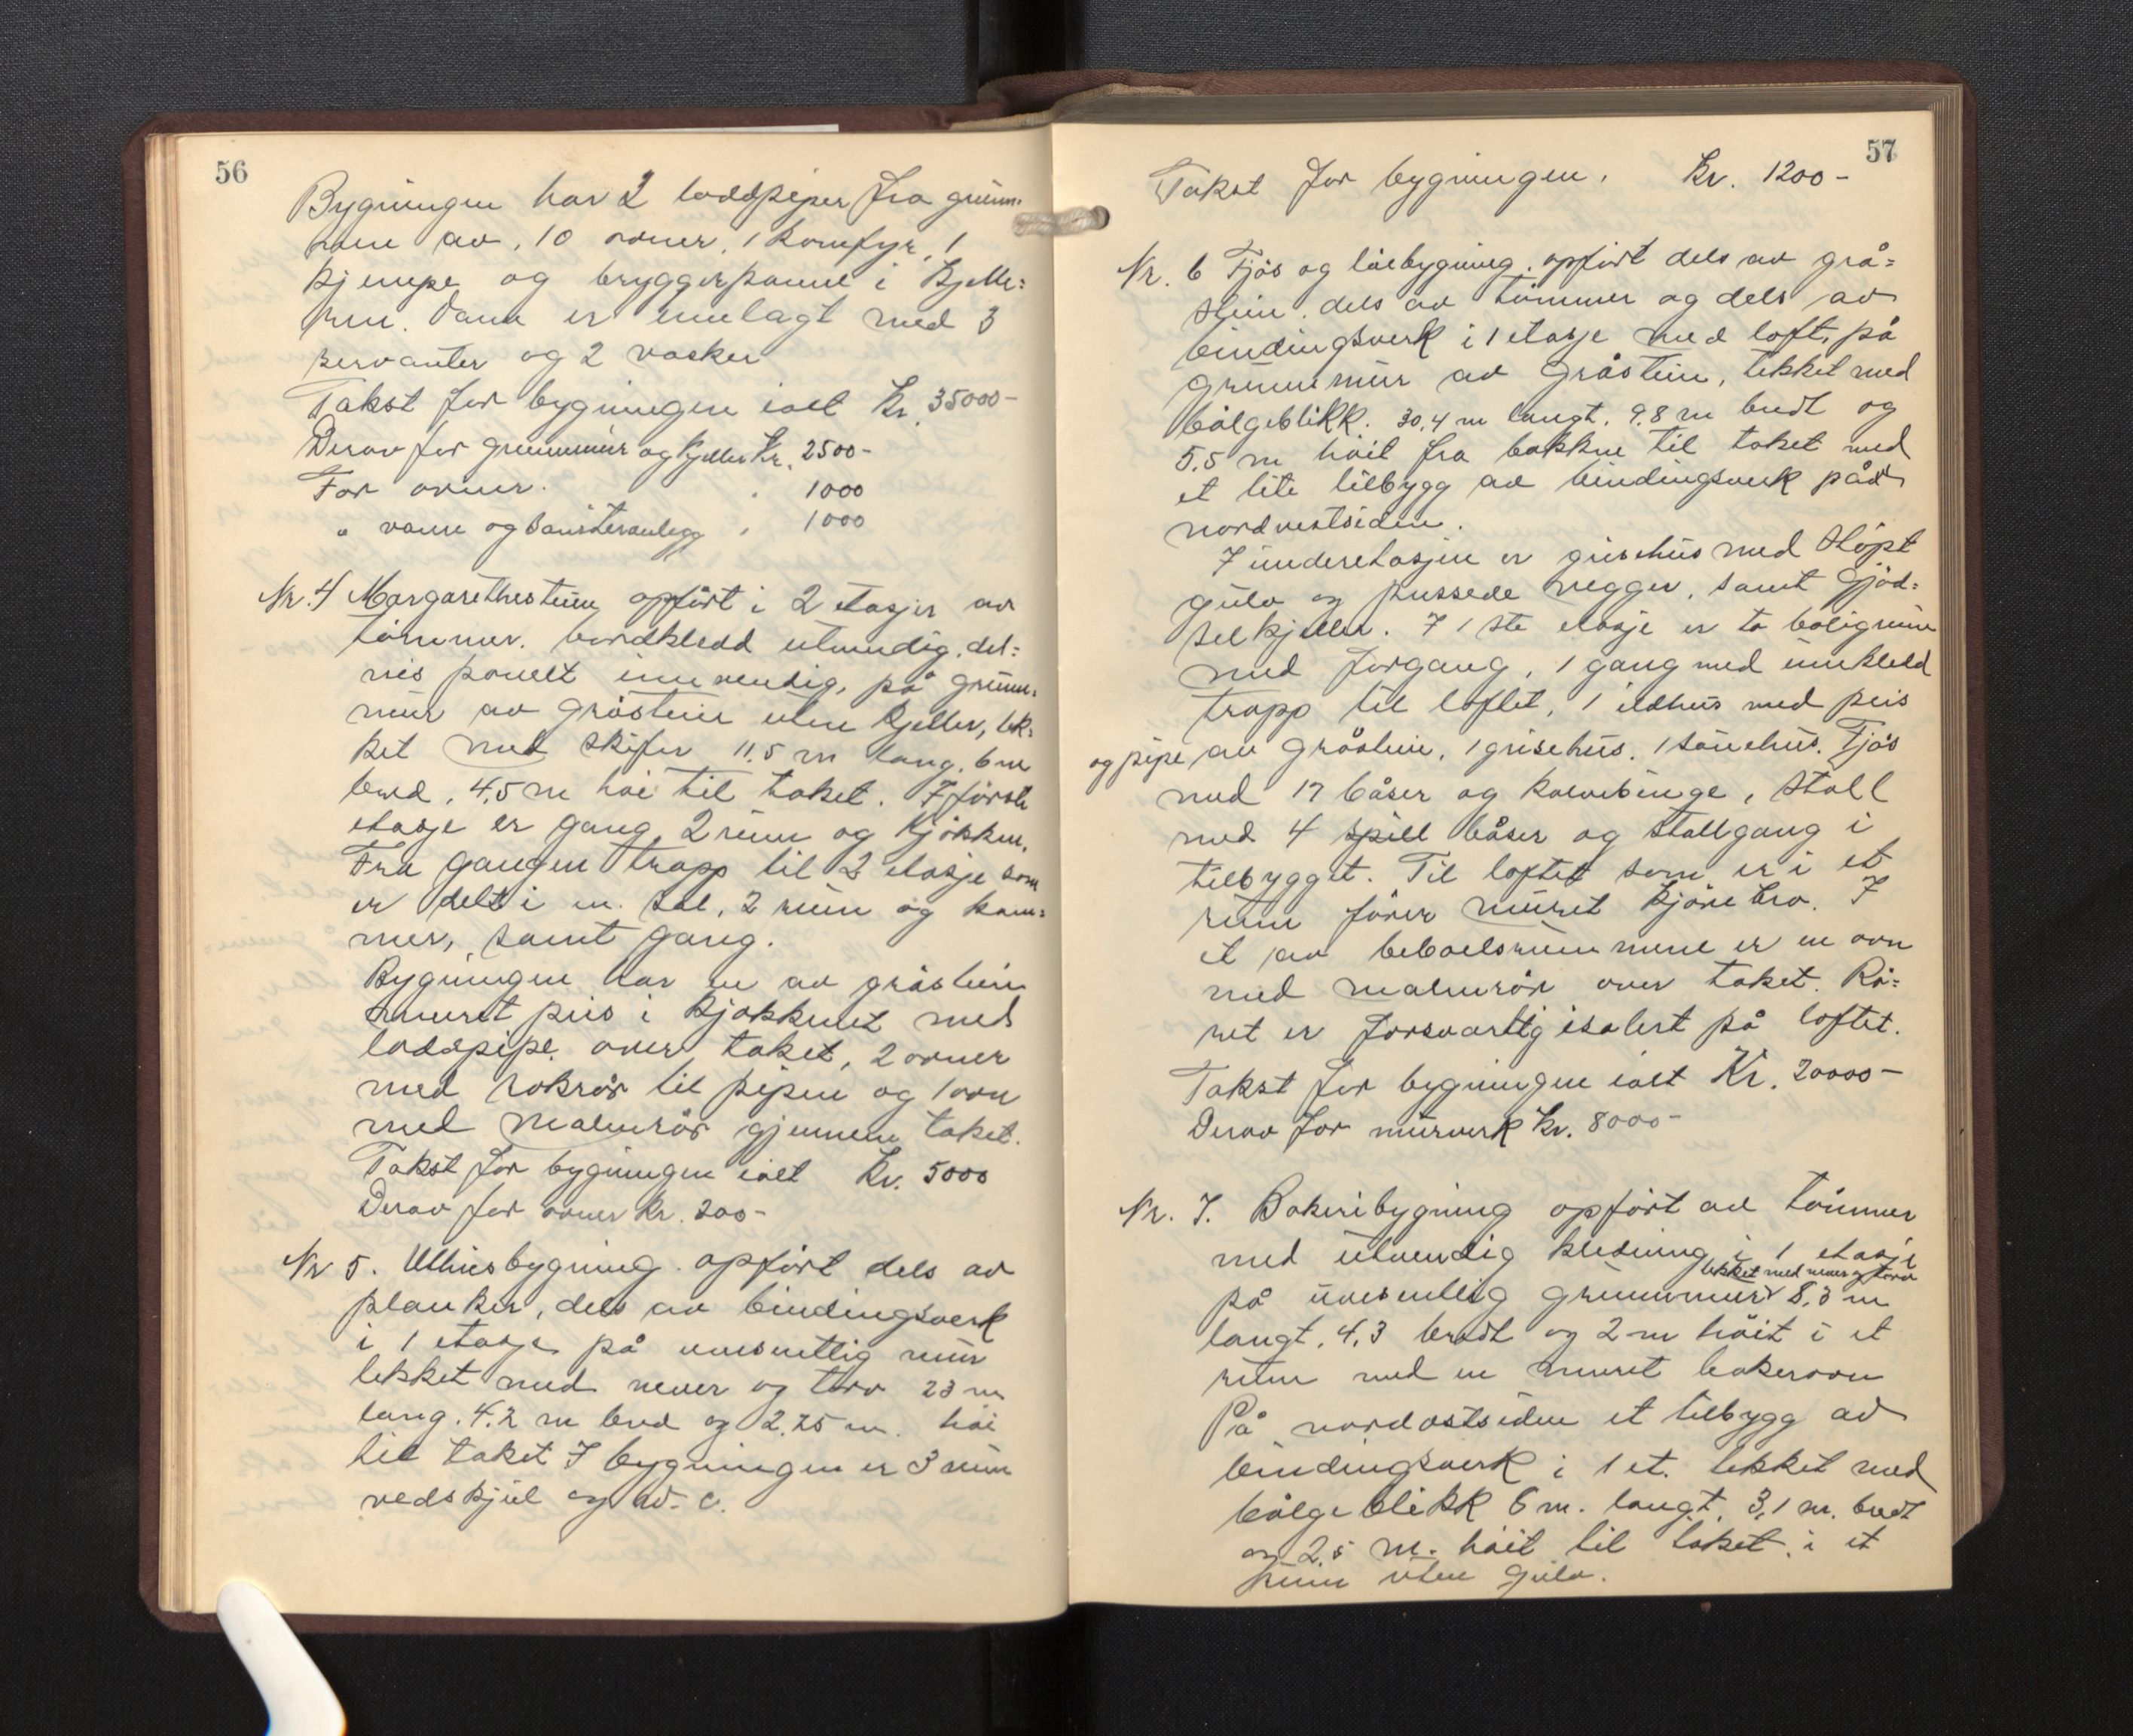 56
Bygningen har 2 loddpiper fra grun-
nen av, 10 ovner, 1 komfyr, 1
kjempe og bryggerpanne i kjelle=
ren. Vann er innlagt med 3
servanter og 2 vasker
Takst for bygningen ialt Kr. 35000-
Derav for grunnmur og kjeller Kr. 2500-
For ovner. " 1000
" vann og sanitæranlegg " 1000
Nr. 4 Margarethestein opført i 2 etasjer av
tømmer. bordkledd utvendig, del=
vis panelt innvendig, på grunn-
mur av gråstein uten kjeller, tek-
ket med skifer 11,5 m lang, 6 m
bred, 4,5 m høi til taket. I første
etasje er gang, 2 rum og kjøkken.
Fra gangen trapp til 2 etasje som
er delt i en sal, 2 rum og kam=
mer, samt gang.
Bygningen har en av gråstein
muret peis i kjøkkenet med
loddpipe over taket, 2 ovner
med rokrør til pipen og 1 ovn
med malmrør gjennem taket.
Takst for bygningen ialt Kr. 5000
Derav for ovner Kr. 200-
Nr 5. Uthusbygning opført dels av
planker, dels av bindingsverk
i 1 etasje på uvesentlig mur
tekket med never og torv 23 m
lang. 4.2 m bred og 2.25 m. høi
til taket I bygningen er 3 rum
vedskjul og w. c.
57
Takst for bygningen. Kr. 1200-
Nr. 6 Fjøs og løebygning, opført dels av grå=
stein, dels av tømmer og dels av
bindingsverk i 1 etasje med loft, på
grunnmur av gråstein, tekket med
bølgeblikk. 30,4 m langt, 9,8 m bredt og
5,5 m høit fra bakken til taket med
et lite tilbygg av bindingsverk på
nordvestsiden.
I underetasjen er grisehus med støpt
gulv og pussede vegger, samt gjød=
selkjeller. I 1ste etasje er to boligrum
med forgang, 1 gang med innkledd
trapp til loftet, 1 ildhus med peis
og pipe av gråstein, 1 grisehus, 1 sauehus. Fjøs
med 17 båser og kalvebinge, stall
med 4 spill båser og stallgang i
tilbygget. Til loftet som er i et
rum fører muret kjørebro. I
et av beboelsrummene er en ovn
med malmrør over taket. Rø=
ret er forsvarlig isolert på loftet.
Takst for bygningen ialt Kr. 20000-
Derav for murverk Kr. 8000-
Nr. 7. Bakeribygning opført av tømmer
med utvendig kledning i 1 etasje
tekket med never og torv
på uvesentlig grunnmur 8,3 m
langt, 4,3 bredt og 2 m høit i et
rum med en muret bakerovn
På nordøstsiden et tilbygg av
bindingsverk i 1 et. tekket med
bølgeblikk 6 m. langt, 3,1 m. bredt
og 2,5 m. høit til taket i et
rum uten gulv.